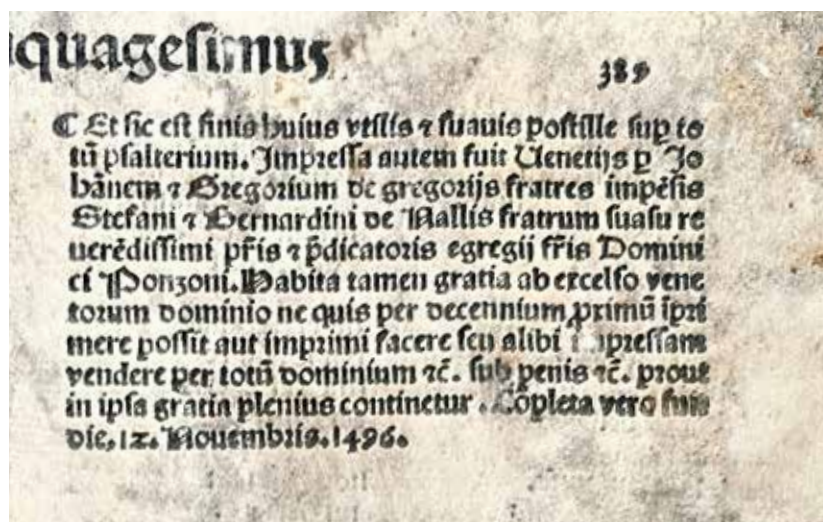 quagesimus
389
¶ Et sic est finis huius vtilis ⁊ suauis postille sup to
tū psalterium. Impressa autem fuit Uenetijs ꝑ Jo
hānem ⁊ Gregorium de gregorijs fratres impēsis
Stefani ⁊ Bernardini de Nallis fratrum suasu re
uerēdissimi pr̄is ⁊ p̄dicatoris egregij fr̄is Domini
ci Ponzoni. Habita tamen gratia ab excelso vene
torum dominio ne quis per decennium primū īpri
mere possit aut imprimi facere seu alibi impressam
vendere per totū dominium ⁊c̄. sub penis ⁊c̄. prout
in ipsa gratia plenius continetur. Cōpleta vero fuit
die. 12. Nouembris. 1496.